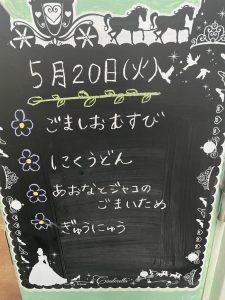 5月20日(火)
ごましおむすび
にくうどん
あおなとジャコの
ごまいため
ぎゅうにゅう
Cinderella